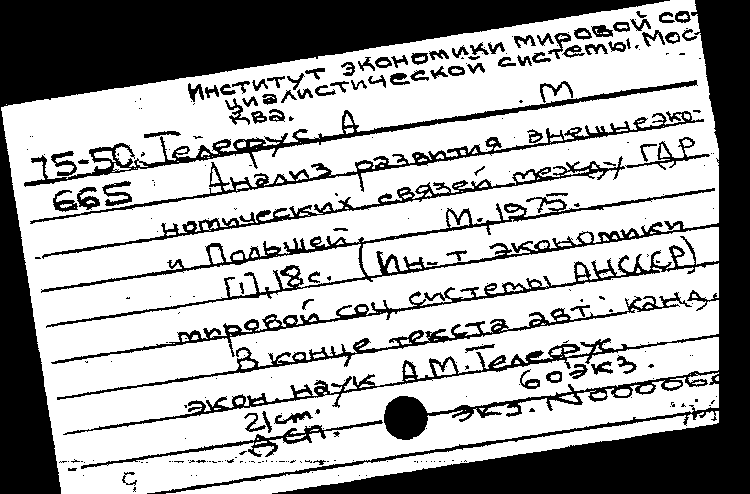 Институт экономики мировой со-
циалистической системы. Мос-
ква.
75-50. Телефус, А М
665 Анализ развития внешнеэко-
номических связей между ГДР
и Польшей. М., 1975.
[1], 18 с. (Ин-т экономики
мировой соц. системы АН СССР).
В конце текста авт.: канд.
экон. наук А.М. Телефус.
21 см. 60 экз.
ДСП. Экз. N 000060